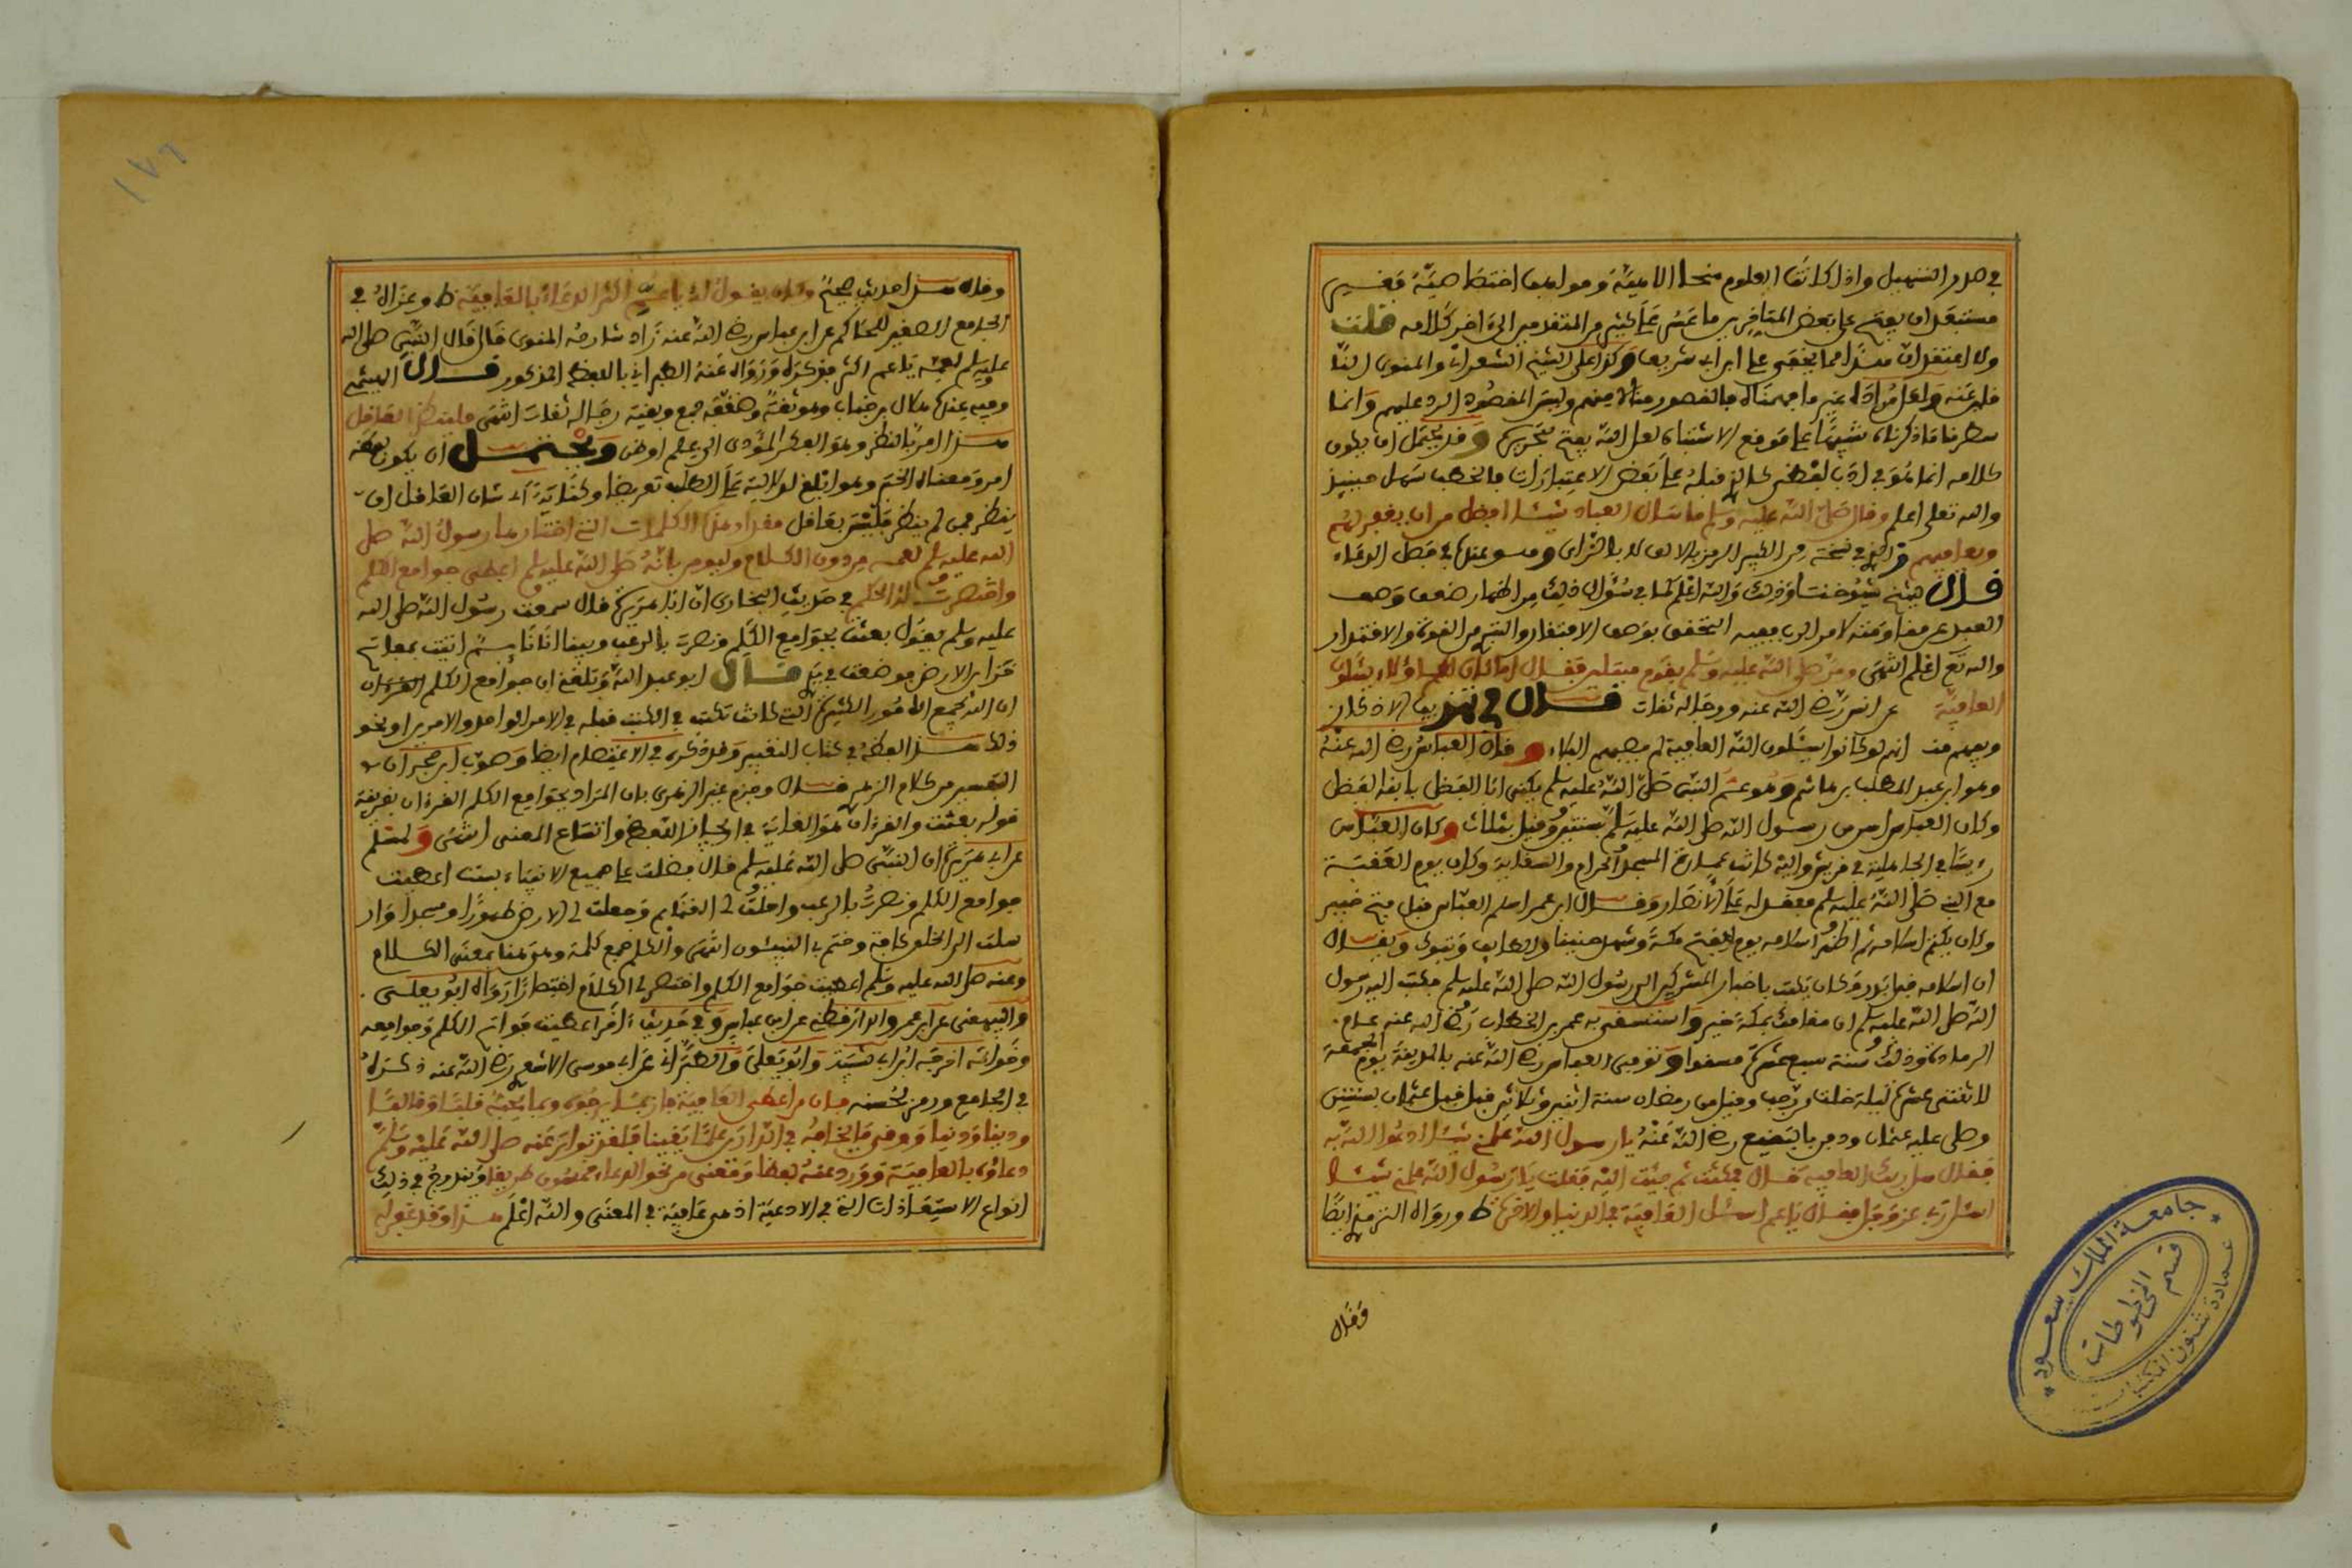 في صدر التسهيل واذا كانت العلوم منحا الاهية ومواهب اختصاصية فغير
مستبعد ان يفتح على بعض المتاخرين ما عسر على كثير من المتقدمين الى اخر كلامه قلت
ولا اعتقد ان هذا مما يخفى على ابن ابي شريف وكذا على الشيخ الشعراني والمنوي
عنه ما فهمناه فالقصور منا لا منهم وليس المقصود الرد عليهم وانما
سطرنا ما ذكرناه تنبيها على موقع الاشتباه لعل الله يفتح بتحريره وقد يحتمل ان يكون
كلامه انما هو في ادب لفظي كالذي قبله على بعض الاعتبارات فالخطب سهل حينئذ
والله تعلى اعلم وقال صلى الله عليه وسلم ما سال العباد شيئا افضل من ان يغفر لهم
ويعافيهم في نسخة من الكبير الرمز بالالف لا بالزاي وهو عندي في فضل الدعاء
قال شيخ شيوخنا وذلك والله اعلم لما في سؤال ذلك من اظهار ضعف وصف
العبد عن مقاومته لامر الرب ففيه التحقق بوصف الافتقار والتبرء من القوة والاقتدار
والله تع اعلم انتهى ومر صلى الله عليه وسلم بقوم مبتلين فقال اما كان هؤلاء يسئلون
العافية عن انس رضي الله عنه ورجاله ثقات قال في الاذكار
ويفهم منه انهم لو كانوا يسئلون الله العافية لم يصبهم البلاء وقال العباس رضي الله عنه
وهو ابن عبد المطلب بن هاشم وهو عم النبي صلى الله عليه وسلم يكنى ابا الفضل بابنه الفضل
وكان العباس اسن من رسول الله صلى الله عليه وسلم بسنتين وقيل بثلاث وكان العباس
رئيسا في الجاهلية في قريش واليه كانت عمارة المسجد الحرام والسقاية وكان يوم العقبة
مع النبي صلى الله عليه وسلم فعقد له على الانصار وقال ابو عمر اسلم العباس قبل فتح خيبر
وكان يكتم اسلامه ثم اظهر اسلامه يوم فتح مكة وشهد حنينا والطائف وتبوك ويقال
ان اسلامه قبل بدر وكان يكتب باخبار المشركين الى رسول الله صلى الله عليه وسلم فكتب اليه رسول
الله صلى الله عليه وسلم ان مقامك بمكة خير واستسقى به عمر بن الخطاب رضي الله عنه عام
الرمادة وذلك سنة سبع عشرة فسقوا وتوفي العباس رضي الله عنه بالمدينة يوم الجمعة
لاثنتي عشرة ليلة خلت من رجب وقيل من رمضان سنة اثنين وثلاثين قبل قتل عثمان بسنتين
وصلى عليه عثمان ودفن بالبقيع رضي الله عنه يا رسول الله علمني شيئا ادعوا الله به
فقال سل ربك العافية قال فمكثت ثم جئت اليه فقلت يا رسول الله علمني شيئا
اسئل ربي عز وجل فقال يا عم اسئل العافية في الدنيا والاخرة ط ورواه الترمذي ايضا
وقال
وقال هذا حديث صحيح وكان يقول له يا عم اكثر الدعاء بالعافية ط وعزاه في
الجامع الصغير للحاكم عن ابن عباس رضي الله عنه زاد شارحه المنوي قال قال النبي صلى الله
عليه وسلم لعمه يا عم اكثر فذكره ورواه عنه الطبراني باللفظ المذكور قال الهيثمي
وفيه عندهما هلال بن خباب وهو ثقة وضعفه جمع وبقية رجاله ثقات انتهى فلينظر العاقل
هذا امر بالنظر وهو الفكر المؤدي الى علم او ظن ويحتمل ان يكون لفظه
امر ومعناه الخبر وهو ابلغ لدلالته على الطلب تعريضا وكناية اي شان العاقل ان
ينظر فمن لم ينظر فليس بعاقل مقدار هذه الكلمات التي اختارها رسول الله صلى
الله عليه وسلم لعمه من دون الكلام وليومن بانه صلى الله عليه وسلم اعطي جوامع الكلم
واختصرت له الحكم في حديث البخاري ان ابا هريرة قال سمعت رسول الله صلى الله
عليه وسلم يقول بعثت بجوامع الكلم ونصرت بالرعب وبينا انا نائم اتيت بمفاتيح
خزائن الارض فوضعت في يدي قال ابو عبد الله وبلغني ان جوامع الكلم
ان الله يجمع الامور الكثيرة التي كانت تكتب في الكتب قبله في الامر الواحد والامرين او نحو
ذلك هذا لفظه في كتاب التعبير وقد ذكره في الاعتصام ايضا وصوب ابن حجر ان
التفسير من كلام الزهري قال وجزم غير الزهري بان المراد بجوامع الكلم القرءان بقرينة
قوله بعثت والقرءان هو الغاية في ايجاز اللفظ واتساع المعنى انتهى ولمسلم
عن ابي هريرة ان النبي صلى الله عليه وسلم قال فضلت على جميع الانبياء بست اعطيت
جوامع الكلم ونصرت بالرعب واحلت لي الغنائم وجعلت لي الارض طهورا ومسجدا وار
سلت الى الخلق كافة وختم بي النبيئون انتهى والكلم جمع كلمة وهو هنا بمعنى الكلام
وعنه صلى الله عليه وسلم اعطيت جوامع الكلم واختصر لي الكلام اختصارا رواه ابو يعلى
والبيهقي عن ابن عمر والدارقطني عن ابن عباس وفي حديث اخر اعطيت فواتح الكلم وجوامعه
وخواتمه اخرجه ابن ابي شيبة وابو يعلى والطبراني عن ابي موسى الاشعري رضي الله عنه ذكره
في الجامع ورمز لحسنه فان من اعطي العافية فاز بما يرجوه وبما يحبه قلبا وقالبا
ودينا ودنيا ووقي ما يخافه في الدارين علما يقينا فلقد تواتر عنه صلى الله عليه وسلم
دعاؤه بالعافية وورد عنه لفظا ومعنى من نحو الدعاء خمسون طريقا ويندرج في ذلك
انواع الاستعاذات التي في الادعية اذ هي عافية في المعنى والله اعلم هذا وقد
جامعة الملك سعود
قسم المخطوطات
عمادة شئون المكتبات